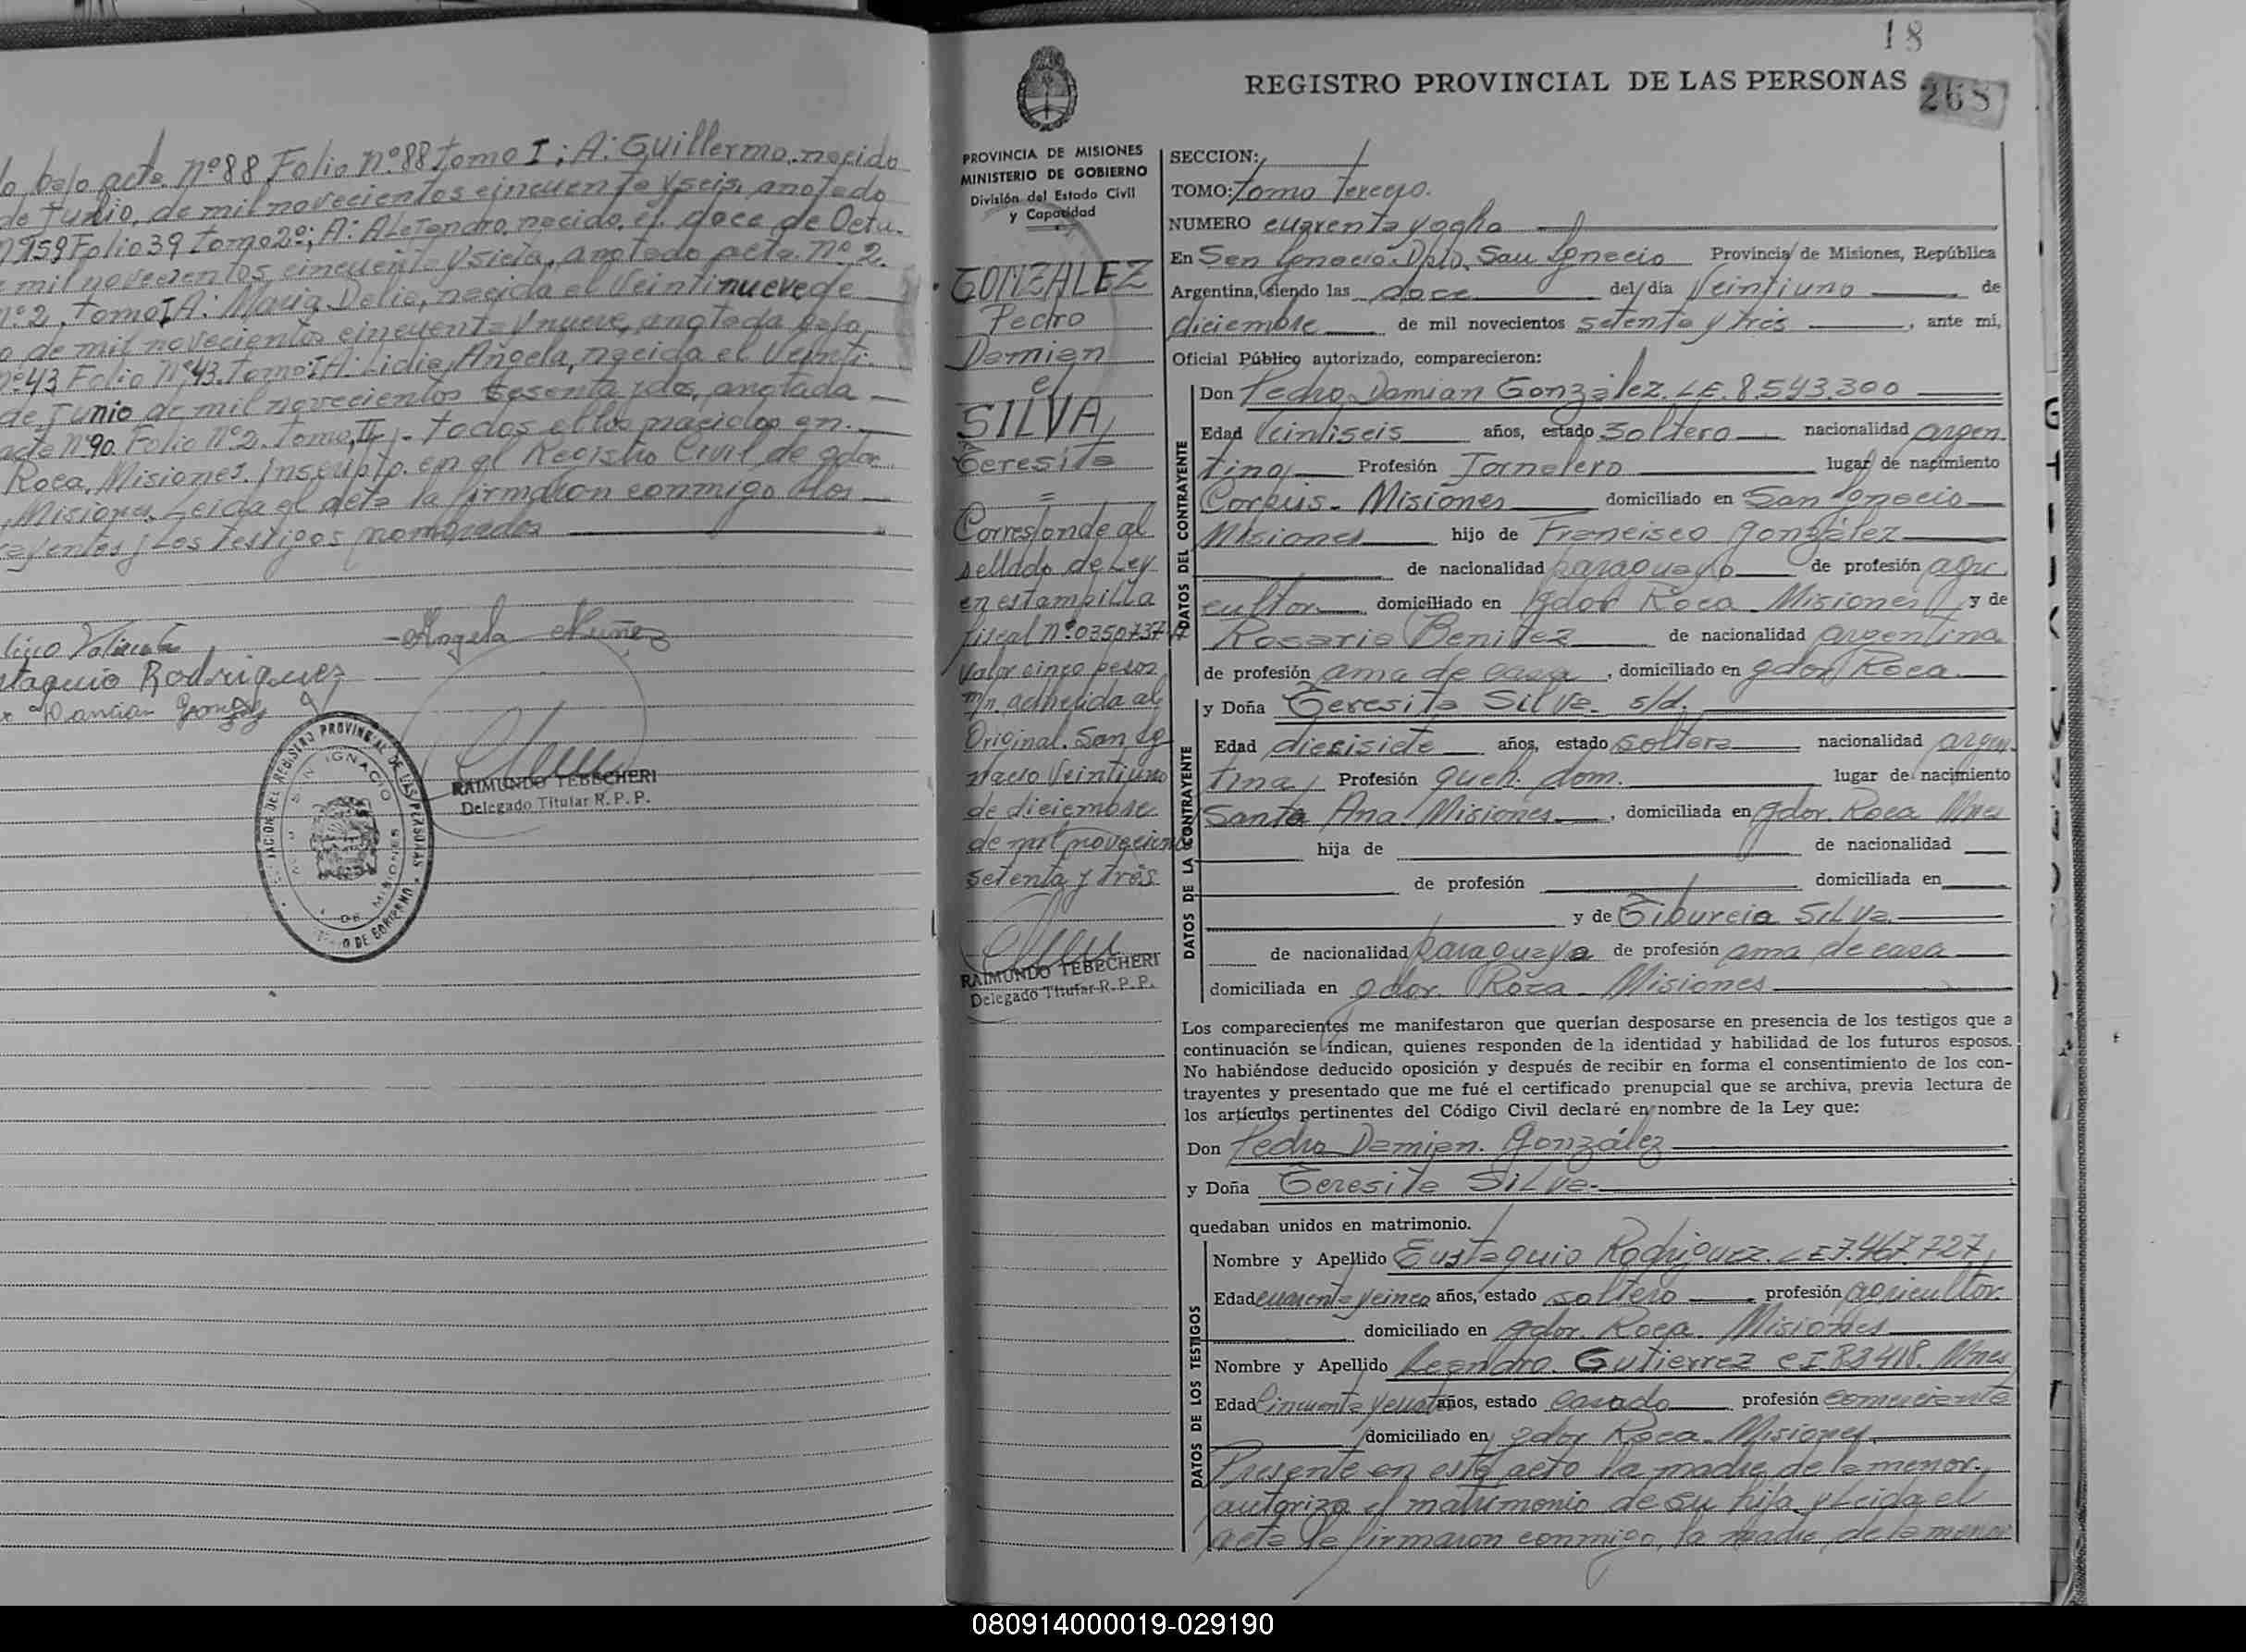 lo bajo acta nº88 Folio nº88 tomo I; A: Guillermo, nacido
de Junio, de mil novecientos cincuenta y seis, anotado
1959 Folio 39 tomo 2º; A: ALeJandro, nacido, el doce de Octu-
mil novecientos cincuenta y siete, anotado acta nº 2.
nº 2, tomo I A: Maria Delia, nacida el Veintinueve de
o de mil novecientos cincuenta y nueve, anotada bajo
nº43 Folio nº43. tomo I A: Lidia Angela, nacida el Veinti-
de Junio de mil novecientos sesenta y dos, anotada
acta nº90. Folio nº2. tomo II.- todos ellos nacidos en.
Roca, Misiones. inscripto en el Registro Civil de gdor.
, Misiones. Leida el acta la firmaron conmigo los
rayentes y Los testigos nombrados
Angela Nuñez
staquio Rodriguez
RAIMUNDO TEBECHERI
Delegado Titular R. P. P.
DEL REGISTRO PROVINCIAL DE LAS PERSONAS
SAN IGNACIO
DE GOBIERNO
18
REGISTRO PROVINCIAL DE LAS PERSONAS
268
PROVINCIA DE MISIONES
MINISTERIO DE GOBIERNO
División del Estado Civil
y Capacidad
GONZALEZ
Pedro
Damian
e/
SILVA,
Teresita
=
Corresponde al
sellado de Ley
en estampilla
fiscal nº 0350737-A
Valor cinco pesos
m/n. adherida al
Original. San Ig
nacio Veintiuno
de diciembre
de mil novecientos
setenta y tres
RAIMUNDO TEBECHERI
Delegado Titular R. P. P.
SECCION:
TOMO: Tomo Tercero.
NUMERO cuarenta y ocho
En San Ignacio. Dpto. San Ignacio Provincia de Misiones, República
Argentina, siendo las doce del día Veintiuno de
diciembre de mil novecientos setenta y tres, ante mí,
Oficial Público autorizado, comparecieron:
DATOS DEL CONTRAYENTE
Don Pedro Damian González. LE. 8.543.300
Edad Veintiseis años, estado soltero nacionalidad argen
tina Profesión Jornalero lugar de nacimiento
Corpus - Misiones domiciliado en San Ignacio
Misiones hijo de Francisco González
de nacionalidad paraguayo de profesión agri
cultor domiciliado en gdor Roca - Misiones y de
Rosario Benitez de nacionalidad argentina
de profesión ama de casa, domiciliado en gdor Roca
DATOS DE LA CONTRAYENTE
y Doña Teresita Silva. s/d.
Edad diecisiete años, estado soltera nacionalidad argen
tina Profesión queh. dom. lugar de nacimiento
Santa Ana Misiones, domiciliada en gdor. Roca Mnes
hija de de nacionalidad
de profesión domiciliada en
y de Tiburcia Silva.
de nacionalidad paraguaya de profesión ama de casa
domiciliada en gdor. Roca - Misiones
Los comparecientes me manifestaron que querían desposarse en presencia de los testigos que a
continuación se indican, quienes responden de la identidad y habilidad de los futuros esposos.
No habiéndose deducido oposición y después de recibir en forma el consentimiento de los con-
trayentes y presentado que me fué el certificado prenupcial que se archiva, previa lectura de
los artículos pertinentes del Código Civil declaré en nombre de la Ley que:
Don Pedro Damian. González
y Doña Teresita Silva.
quedaban unidos en matrimonio.
DATOS DE LOS TESTIGOS
Nombre y Apellido Eustaquio Rodriguez. LE 7.467.727,
Edad cuarenta y cinco años, estado soltero profesión agricultor.
domiciliado en gdor. Roca. Misiones
Nombre y Apellido Leandro. Gutierrez C.I. 83418. Mnes
Edad Cincuenta y cuatro años, estado casado profesión comerciante
domiciliado en gdor Roca. Misiones.
Presente en este acto la madre de la menor.
autoriza el matrimonio de su hija. y Leida el
acta la firmaron conmigo, la madre, de la menor
080914000019-029190